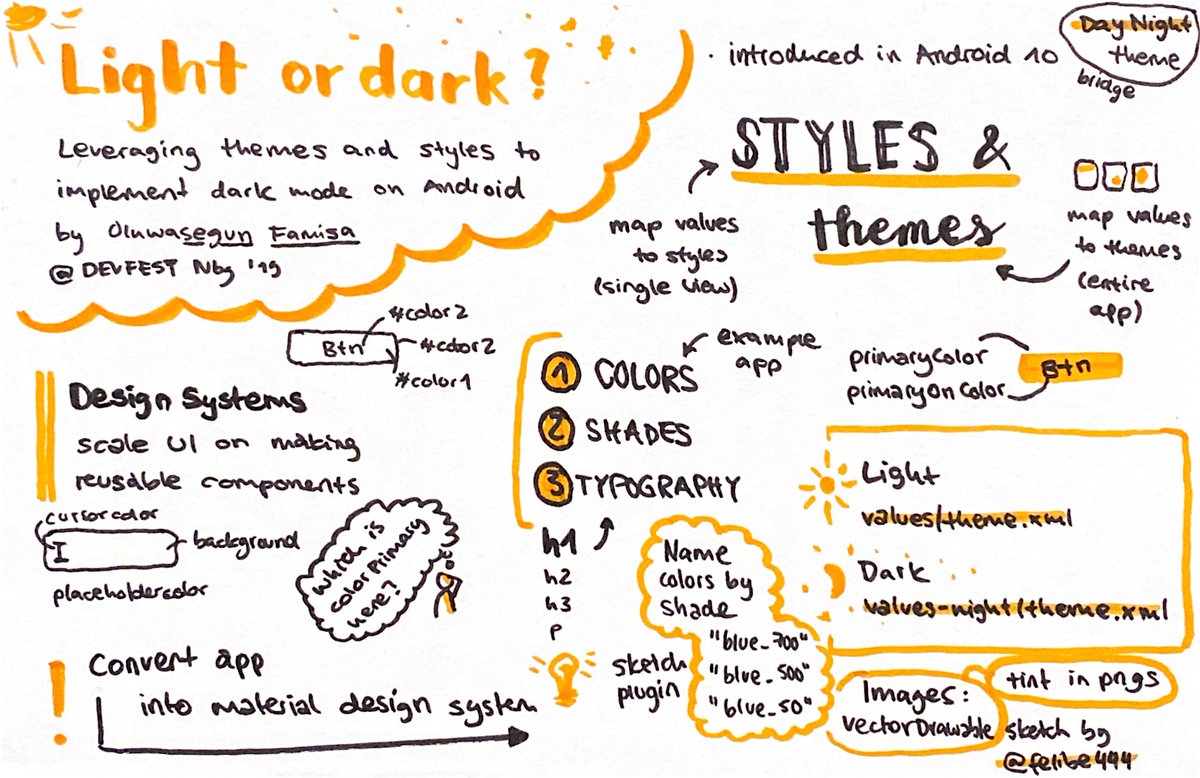 Light or dark?
Leveraging themes and styles to
implement dark mode on Android
by Oluwasegun Famisa
@ DEVFEST Nbg '19
· introduced in Android 10
DayNight
theme
bridge
STYLES &
themes
map values
to styles
(single view)
map values
to themes
(entire
app)
Btn
#color2
#color2
#color1
Design Systems
scale UI on making
reusable components
cursorcolor
I
background
placeholdercolor
which is
colorPrimary
here?
! Convert app
into material design system
example
app
1 COLORS
2 SHADES
3 TYPOGRAPHY
h1
h2
h3
p
primaryColor
primaryOnColor
Btn
Light
values/theme.xml
Dark
values-night/theme.xml
Name
colors by
shade
"blue_700"
"blue_500"
"blue_50"
sketch
plugin
Images:
vectorDrawable
tint in pngs
sketch by
@felibe444